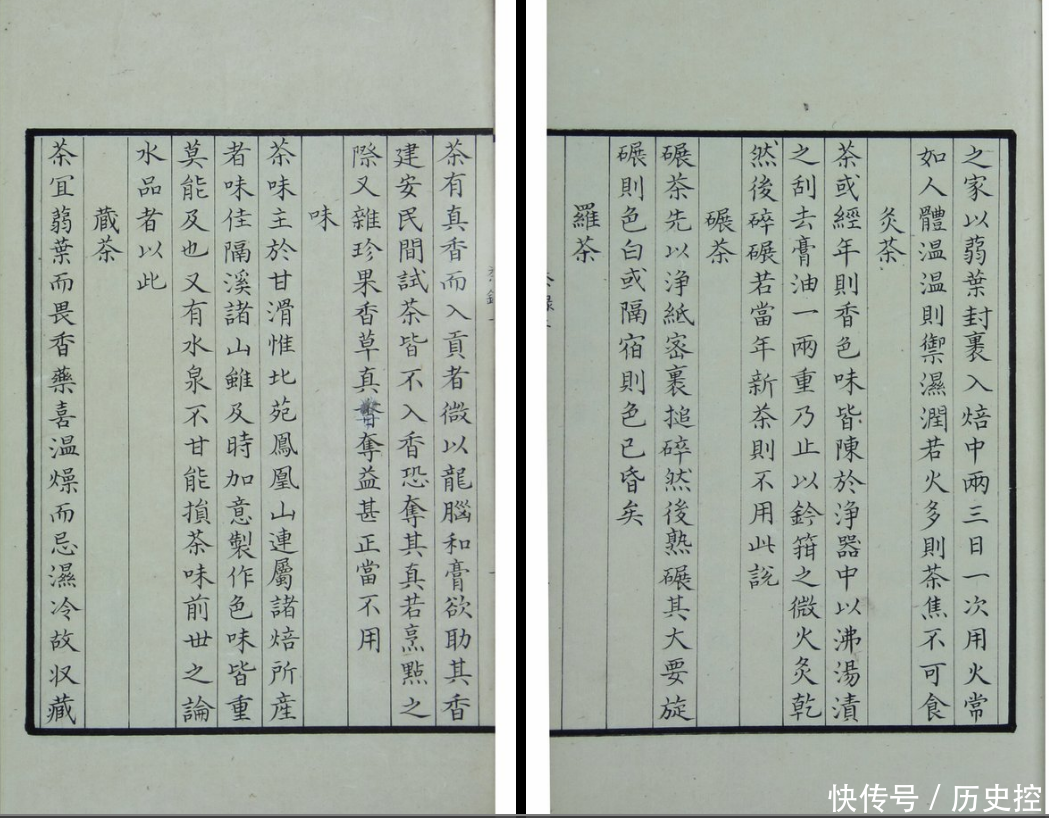 茶有真香而入貢者微以龍腦和膏欲助其香
建安民間試茶皆不入香恐奪其真若烹點之
際又雜珍果香草真奪益甚正當不用
味
茶味主於甘滑惟北苑鳳凰山連屬諸焙所産
者味佳隔溪諸山雖及時加意製作色味皆重
莫能及也又有水泉不甘能損茶味前世之論
水品者以此
藏茶
茶冝蒻葉而畏香藥喜温燥而忌濕冷故収藏
之家以蒻葉封裹入焙中兩三日一次用火常
如人體温温則禦濕潤若火多則茶焦不可食
炙茶
茶或經年則香色味皆陳於浄器中以沸湯漬
之刮去膏油一兩重乃止以鈐箝之微火炙乾
然後碎碾若當年新茶則不用此說
碾茶
碾茶先以浄紙宻裹搥碎然後熟碾其大要旋
碾則色白或隔宿則色已昏矣
羅茶
快传号 / 历史控